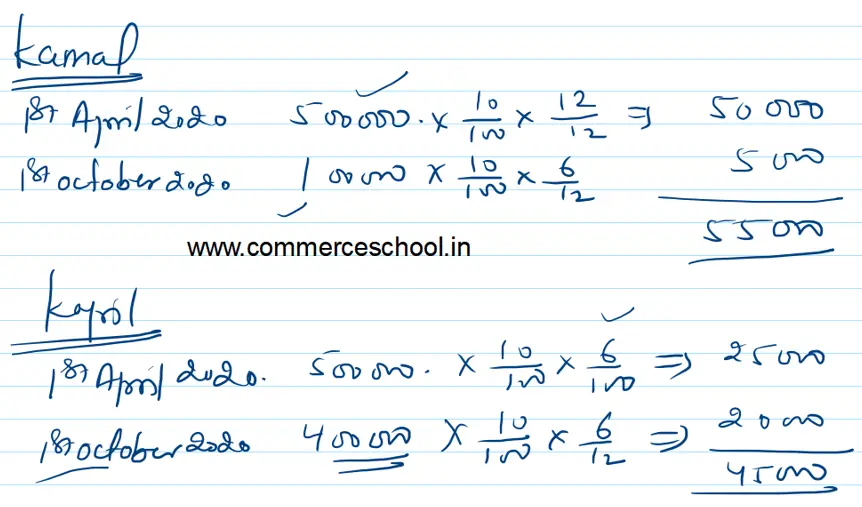 Kamal
1st April 2020 500000. × 10/100 × 12/12 ⇒ 50000
1st october 2020 100000 × 10/100 × 6/12 5000
55000
www.commerceschool.in
Kapil
1st April 2020. 500000. × 10/100 × 6/100 ⇒ 25000
1st october 2020 400000 × 10/100 × 6/12 ⇒ 20000
45000